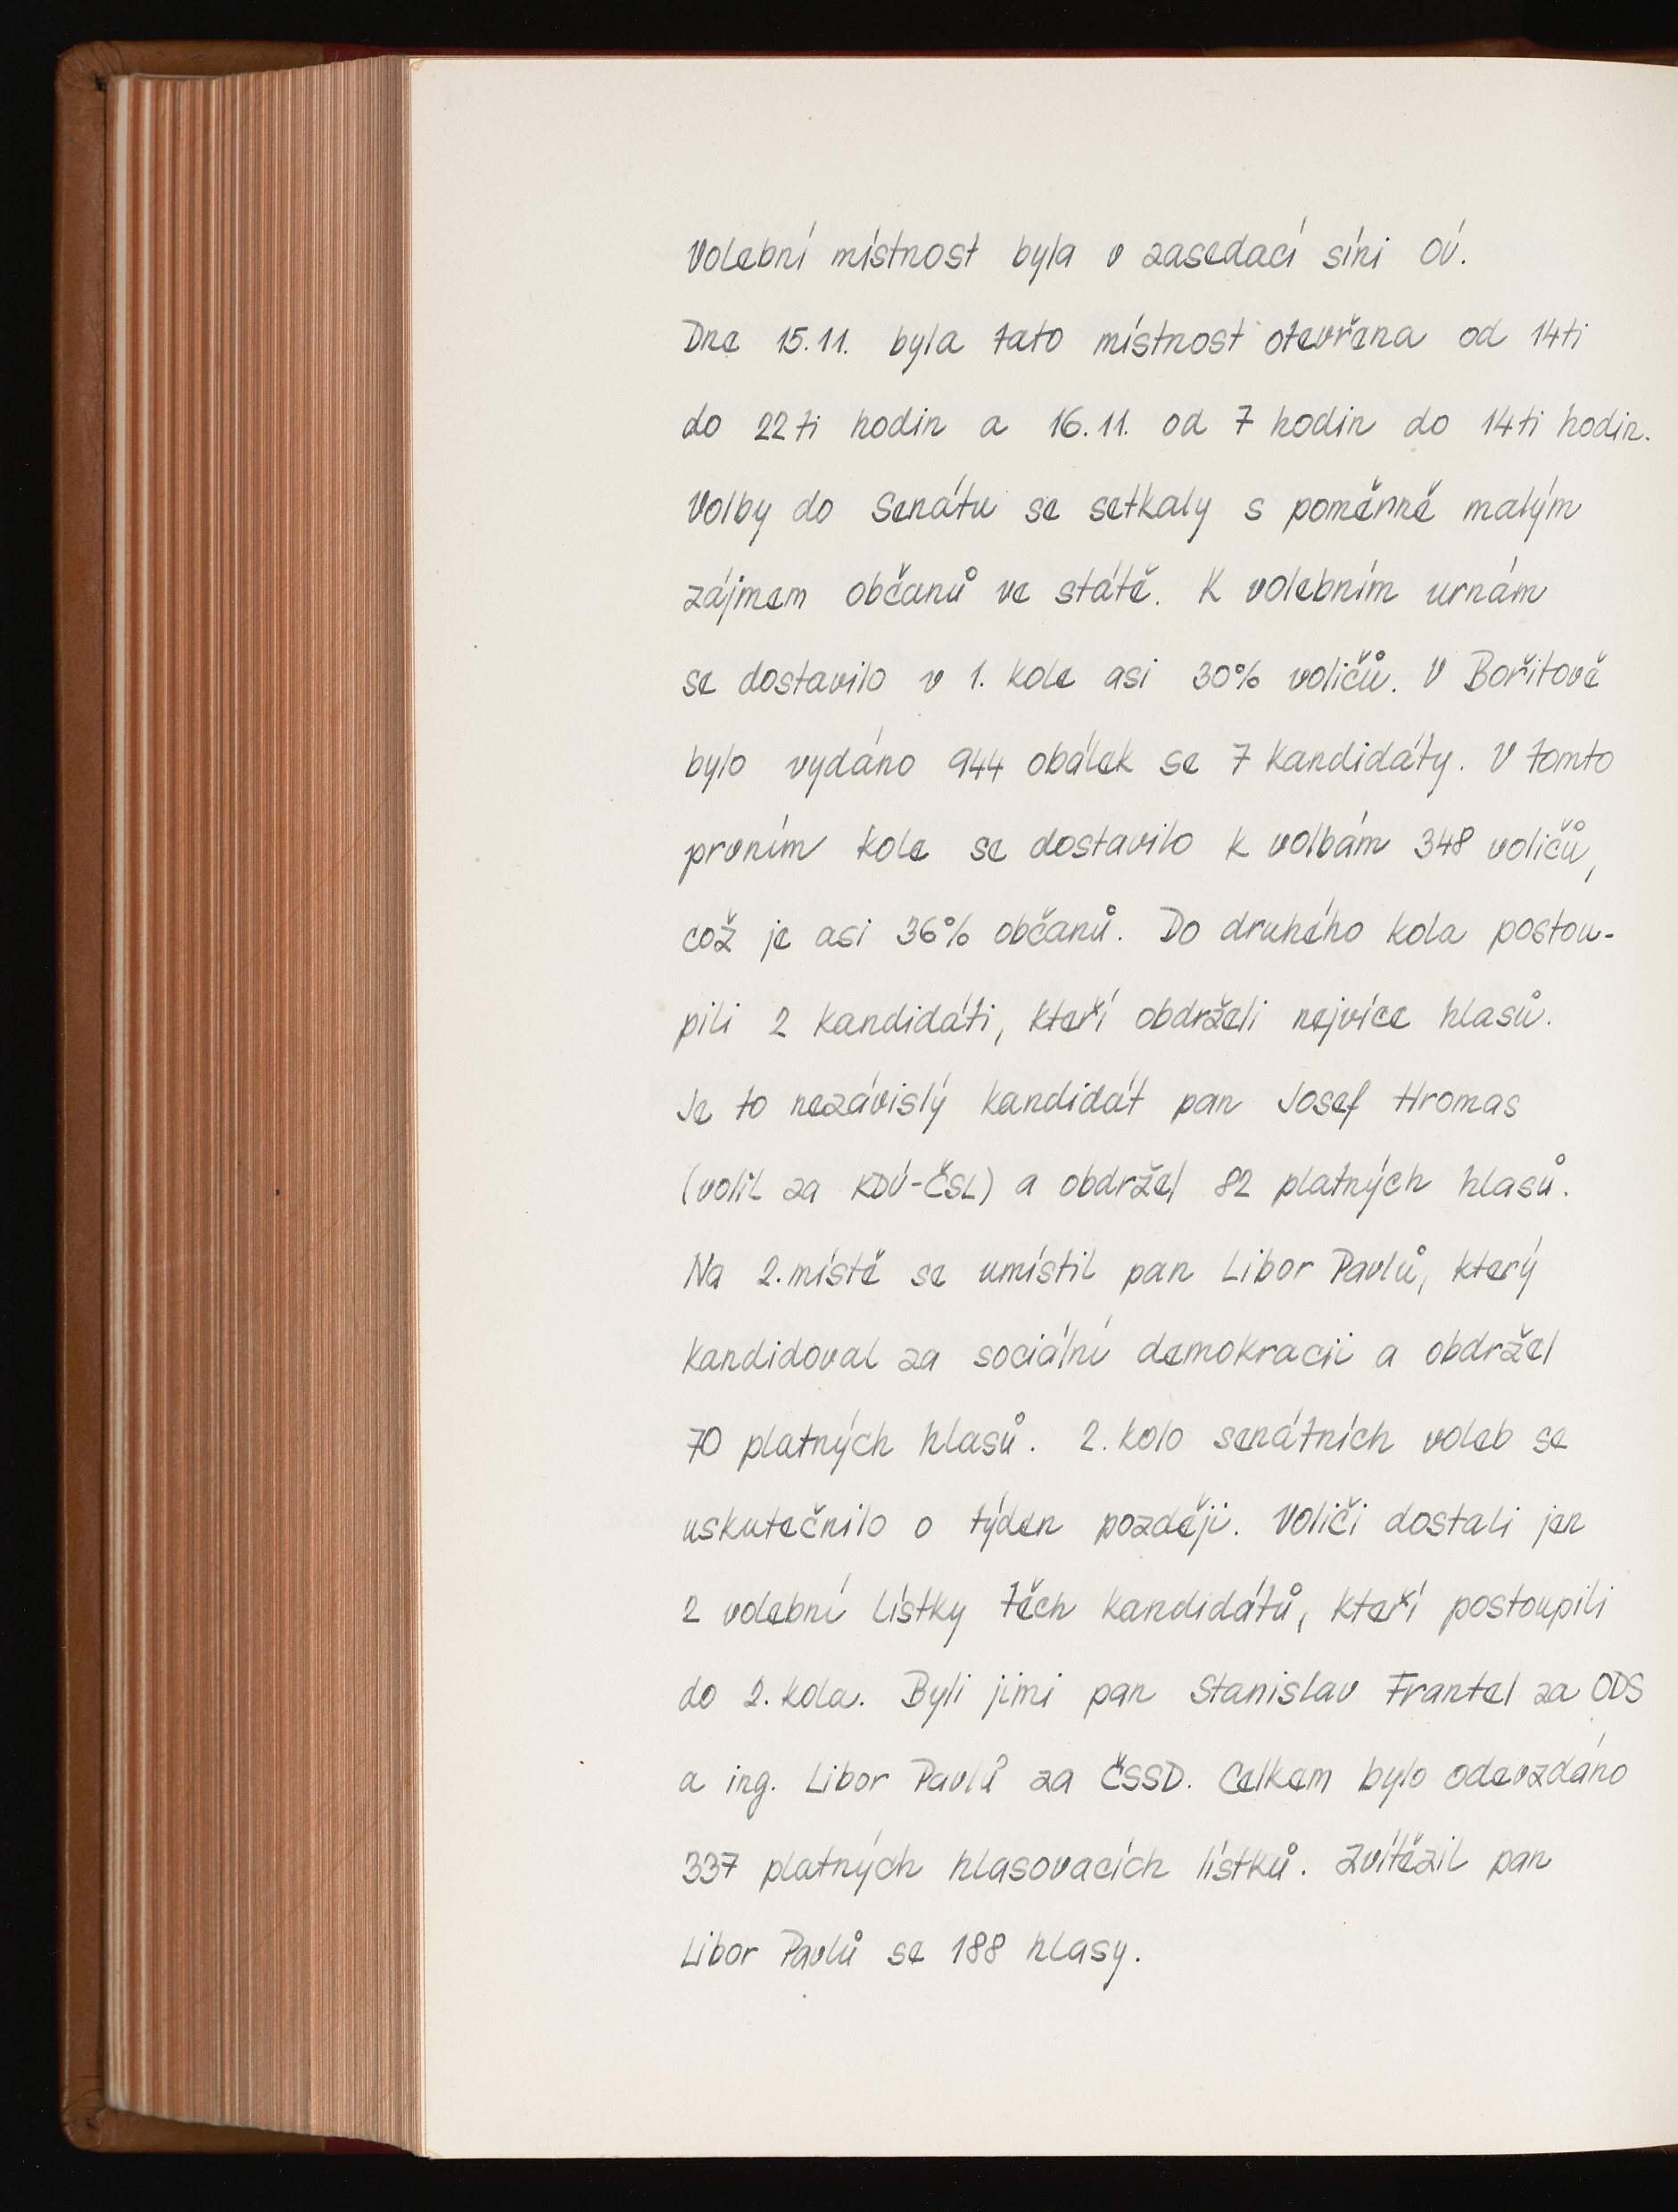 Volební místnost byla v zasedací síni OÚ.
Dne 15.11. byla tato místnost otevřena od 14ti
do 22ti hodin a 16.11. od 7 hodin do 14ti hodin.
Volby do Senátu se setkaly s poměrně malým
zájmem občanů ve státě. K volebním urnám
se dostavilo v 1. kole asi 30% voličů. V Bořitově
bylo vydáno 944 obálek se 7 kandidáty. V tomto
prvním kole se dostavilo k volbám 348 voličů,
což je asi 36% občanů. Do druhého kola postou-
pili 2 kandidáti, kteří obdrželi nejvíce hlasů.
Je to nezávislý kandidát pan Josef Hromas
(volil za KDU-ČSL) a obdržel 82 platných hlasů.
Na 2. místě se umístil pan Libor Pavlů, který
kandidoval za sociální demokracii a obdržel
70 platných hlasů. 2. kolo senátních voleb se
uskutečnilo o týden později. Voliči dostali jen
2 volební lístky těch kandidátů, kteří postoupili
do 2. kola. Byli jimi pan Stanislav Frantel za ODS
a ing. Libor Pavlů za ČSSD. Celkem bylo odevzdáno
337 platných hlasovacích lístků. Zvítězil pan
Libor Pavlů se 188 hlasy.